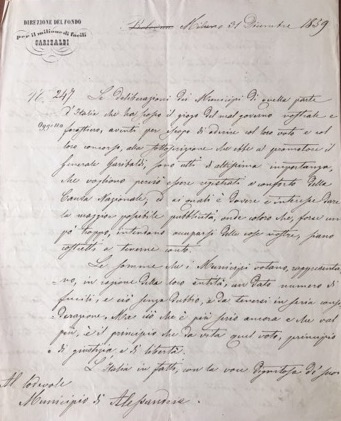 DIREZIONE DEL FONDO
per il milione di fucili
GARIBALDI
Bologna Milano 21 Dicembre 1859
N. 247
Oggetto
Le deliberazioni dei Municipi di quella parte
d'Italia che ha il giogo del mal governo e
forestiero, aventi per scopo di aderire col loro voto e col
loro concorso, alla che ebbe a promotore il
Generale Garibaldi, sono atti di altissima importanza,
che vogliono perciò essere registrati a conforto della
Causa Nazionale, ed ai quali è dovere e interesse dare
la maggior possibile pubblicità, onde coloro che, forse un
po' troppo, intendono occuparsi delle cose nostre, siano
costretti a tenerne conto.
Le somme che i Municipi votano, rappresenta-
no, in ragione della loro entità, un dato numero di
fucili, e ciò senza dubbio, è da tenersi in seria consi-
derazione. Ma ciò che è più serio ancora e che val
più, è il principio che dà vita a quel voto, principio
di giustizia e di libertà.
L'Italia in fatti, con la voce dei suoi
Al lodevole
Municipio di Alessandria.